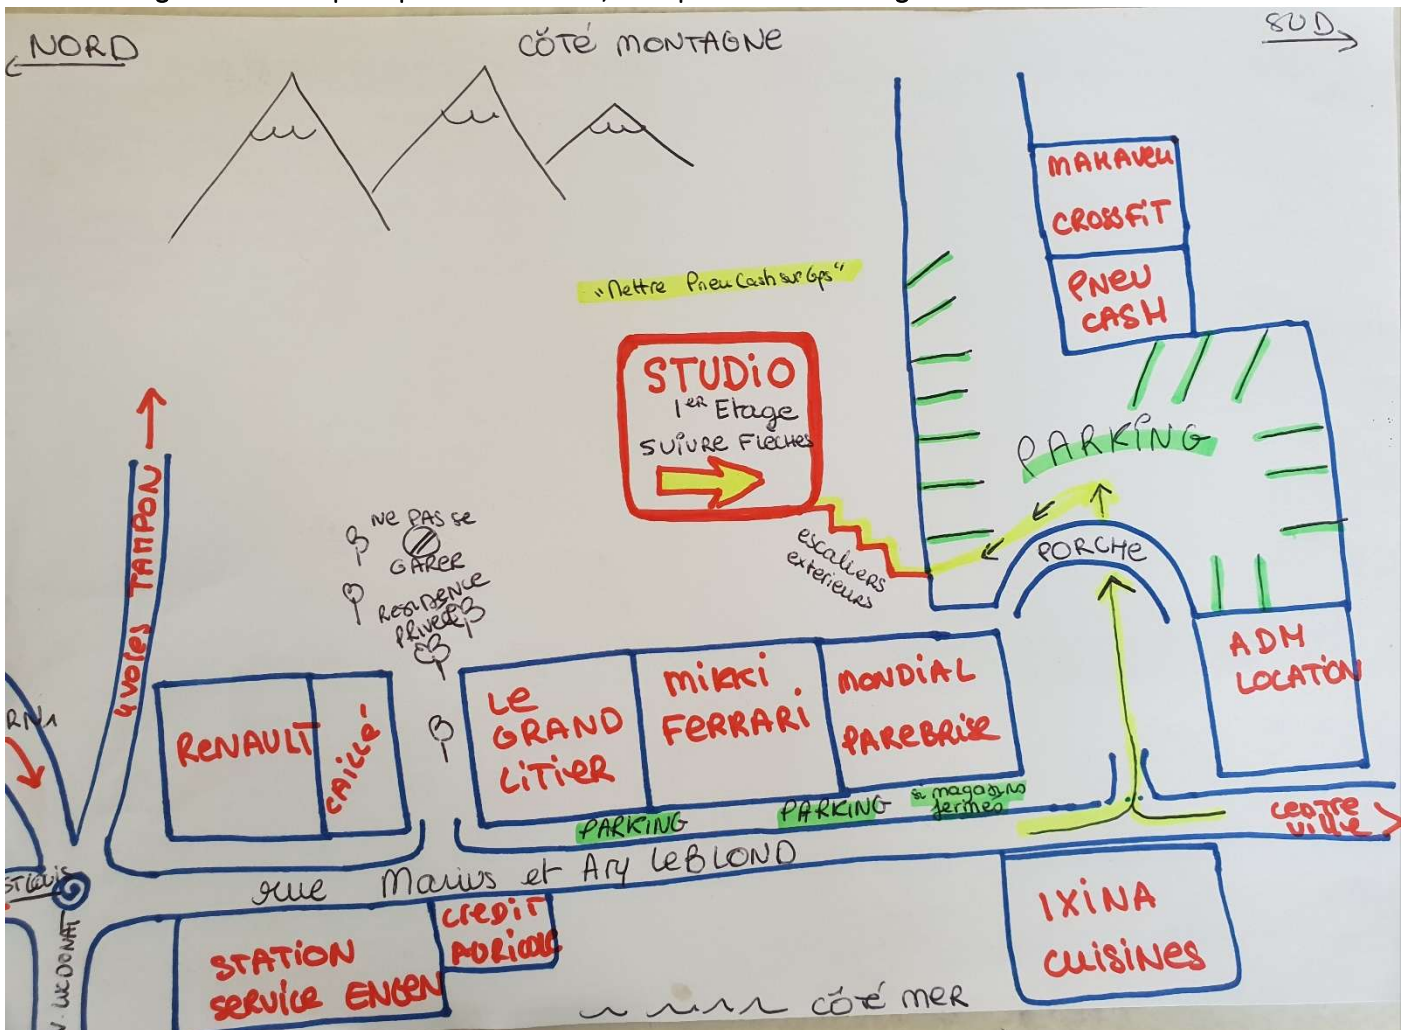 NORD
CÔTÉ MONTAGNE
SUD
MAHAVELI
CROSSFIT
PNEU
CASH
"Mettre Pneu Cash sur Gps"
STUDIO
1er Etage
SUIVRE FLÈCHES
PARKING
PORCHE
escaliers
exterieurs
4 voies TAMPON
NE PAS Se
GARER
RESIDENCE
PRIVÉE
RN1
RENAULT
CAILLÉ
Le
GRAND
LITIER
MIKKI
FERRARI
MONDIAL
PAREBRISE
ADM
LOCATION
PARKING
PARKING
si magasins
fermés
CENTRE
VILLE
rue Marius et Ary LEBLOND
ST LOUIS
STATION
SERVICE ENGEN
CREDIT
AGRICOLE
IXINA
CUISINES
CÔTÉ MER